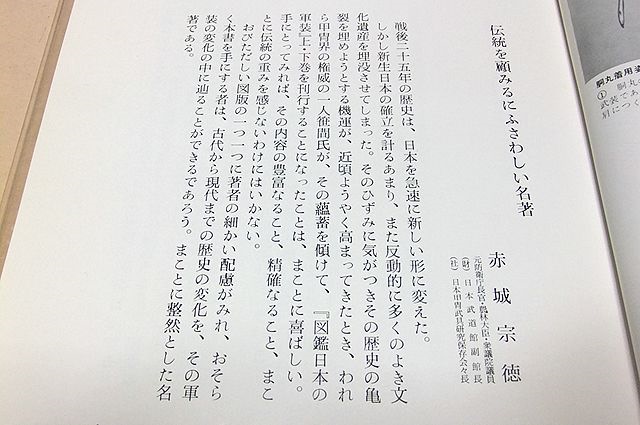 伝統を顧みるにふさわしい名著
赤城宗徳
元防衛庁長官・農林大臣・衆議院議員
(財)日本武道館副館長
(社)日本甲冑武具研究保存会々長
戦後二十五年の歴史は、日本を急速に新しい形に変えた。
しかし新生日本の確立を計るあまり、また反動的に多くのよき文
化遺産を埋没させてしまった。そのひずみに気がつきその歴史の亀
裂を埋めようとする機運が、近頃ようやく高まってきたとき、われ
ら甲冑界の権威の一人笹間氏が、その蘊蓄を傾けて、『図鑑日本の
軍装』上・下巻を刊行することになったことは、まことに喜ばしい。
手にとってみれば、その内容の豊富なること、精確なること、まこ
とに伝統の重みを感じないわけにはいかない。
おびただしい図版の一つ一つに著者の細かい配慮がみれ、おそら
く本書を手にする者は、古代から現代までの歴史の変化を、その軍
装の変化の中に辿ることができるであろう。まことに整然とした名
著である。
胴丸着用姿
①
胴丸
武装であ
肩につ